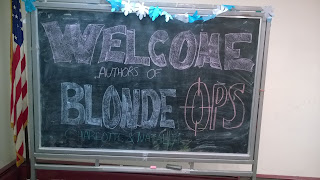 WELCOME
AUTHORS OF
BLONDE OPS